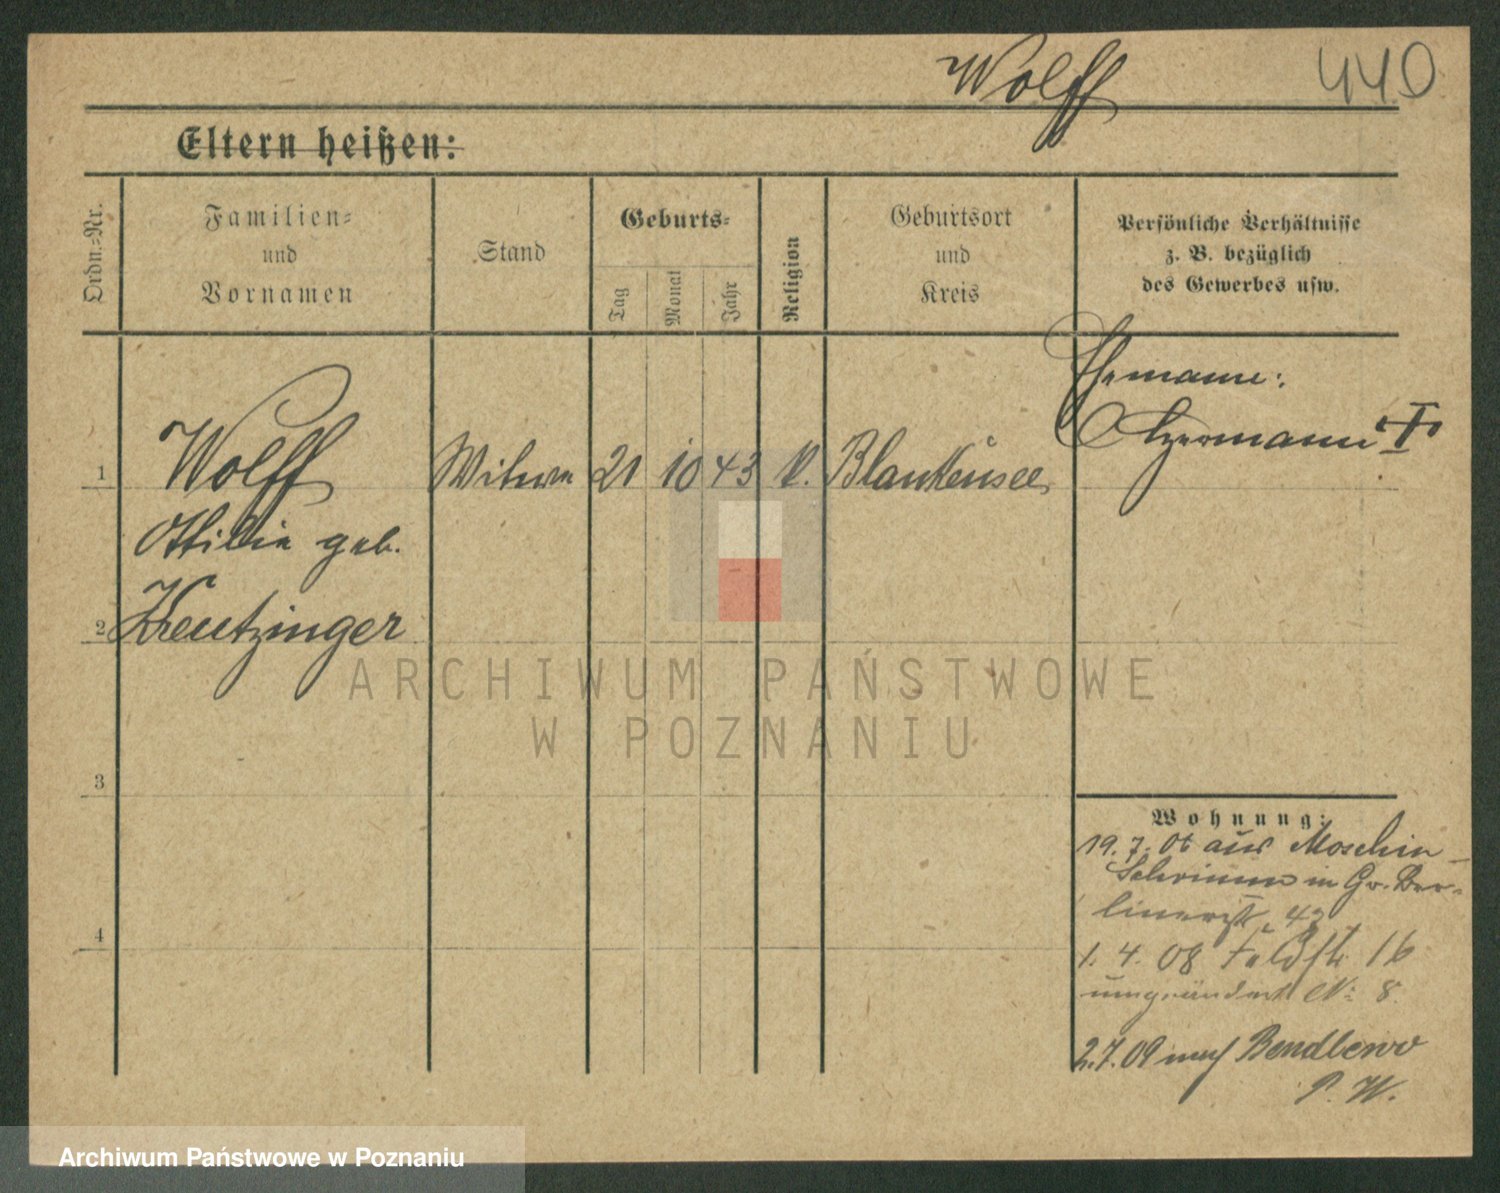 Wolff 440
Eltern heißen:
Ordn.-Nr.
Familien-
und
Vornamen
Stand
Geburts-
Tag
Monat
Jahr
Religion
Geburtsort
und
Kreis
Persönliche Verhältnisse
z. B. bezüglich
des Gewerbes usw.
Ehemann:
Hermann †
1 Wolff Witwe 21 10 43 k. Blankensee
Ottilie geb.
2 Kreutzinger
ARCHIWUM PAŃSTWOWE
W POZNANIU
3
4
Wohnung:
19.7.06 aus Moschin
in Gr. Ber-
linerstr. 43
1. 4. 08 Feldstr 16
umgeändert N: 8.
2.7.09 nach Bendlewo
P. W.
Archiwum Państwowe w Poznaniu